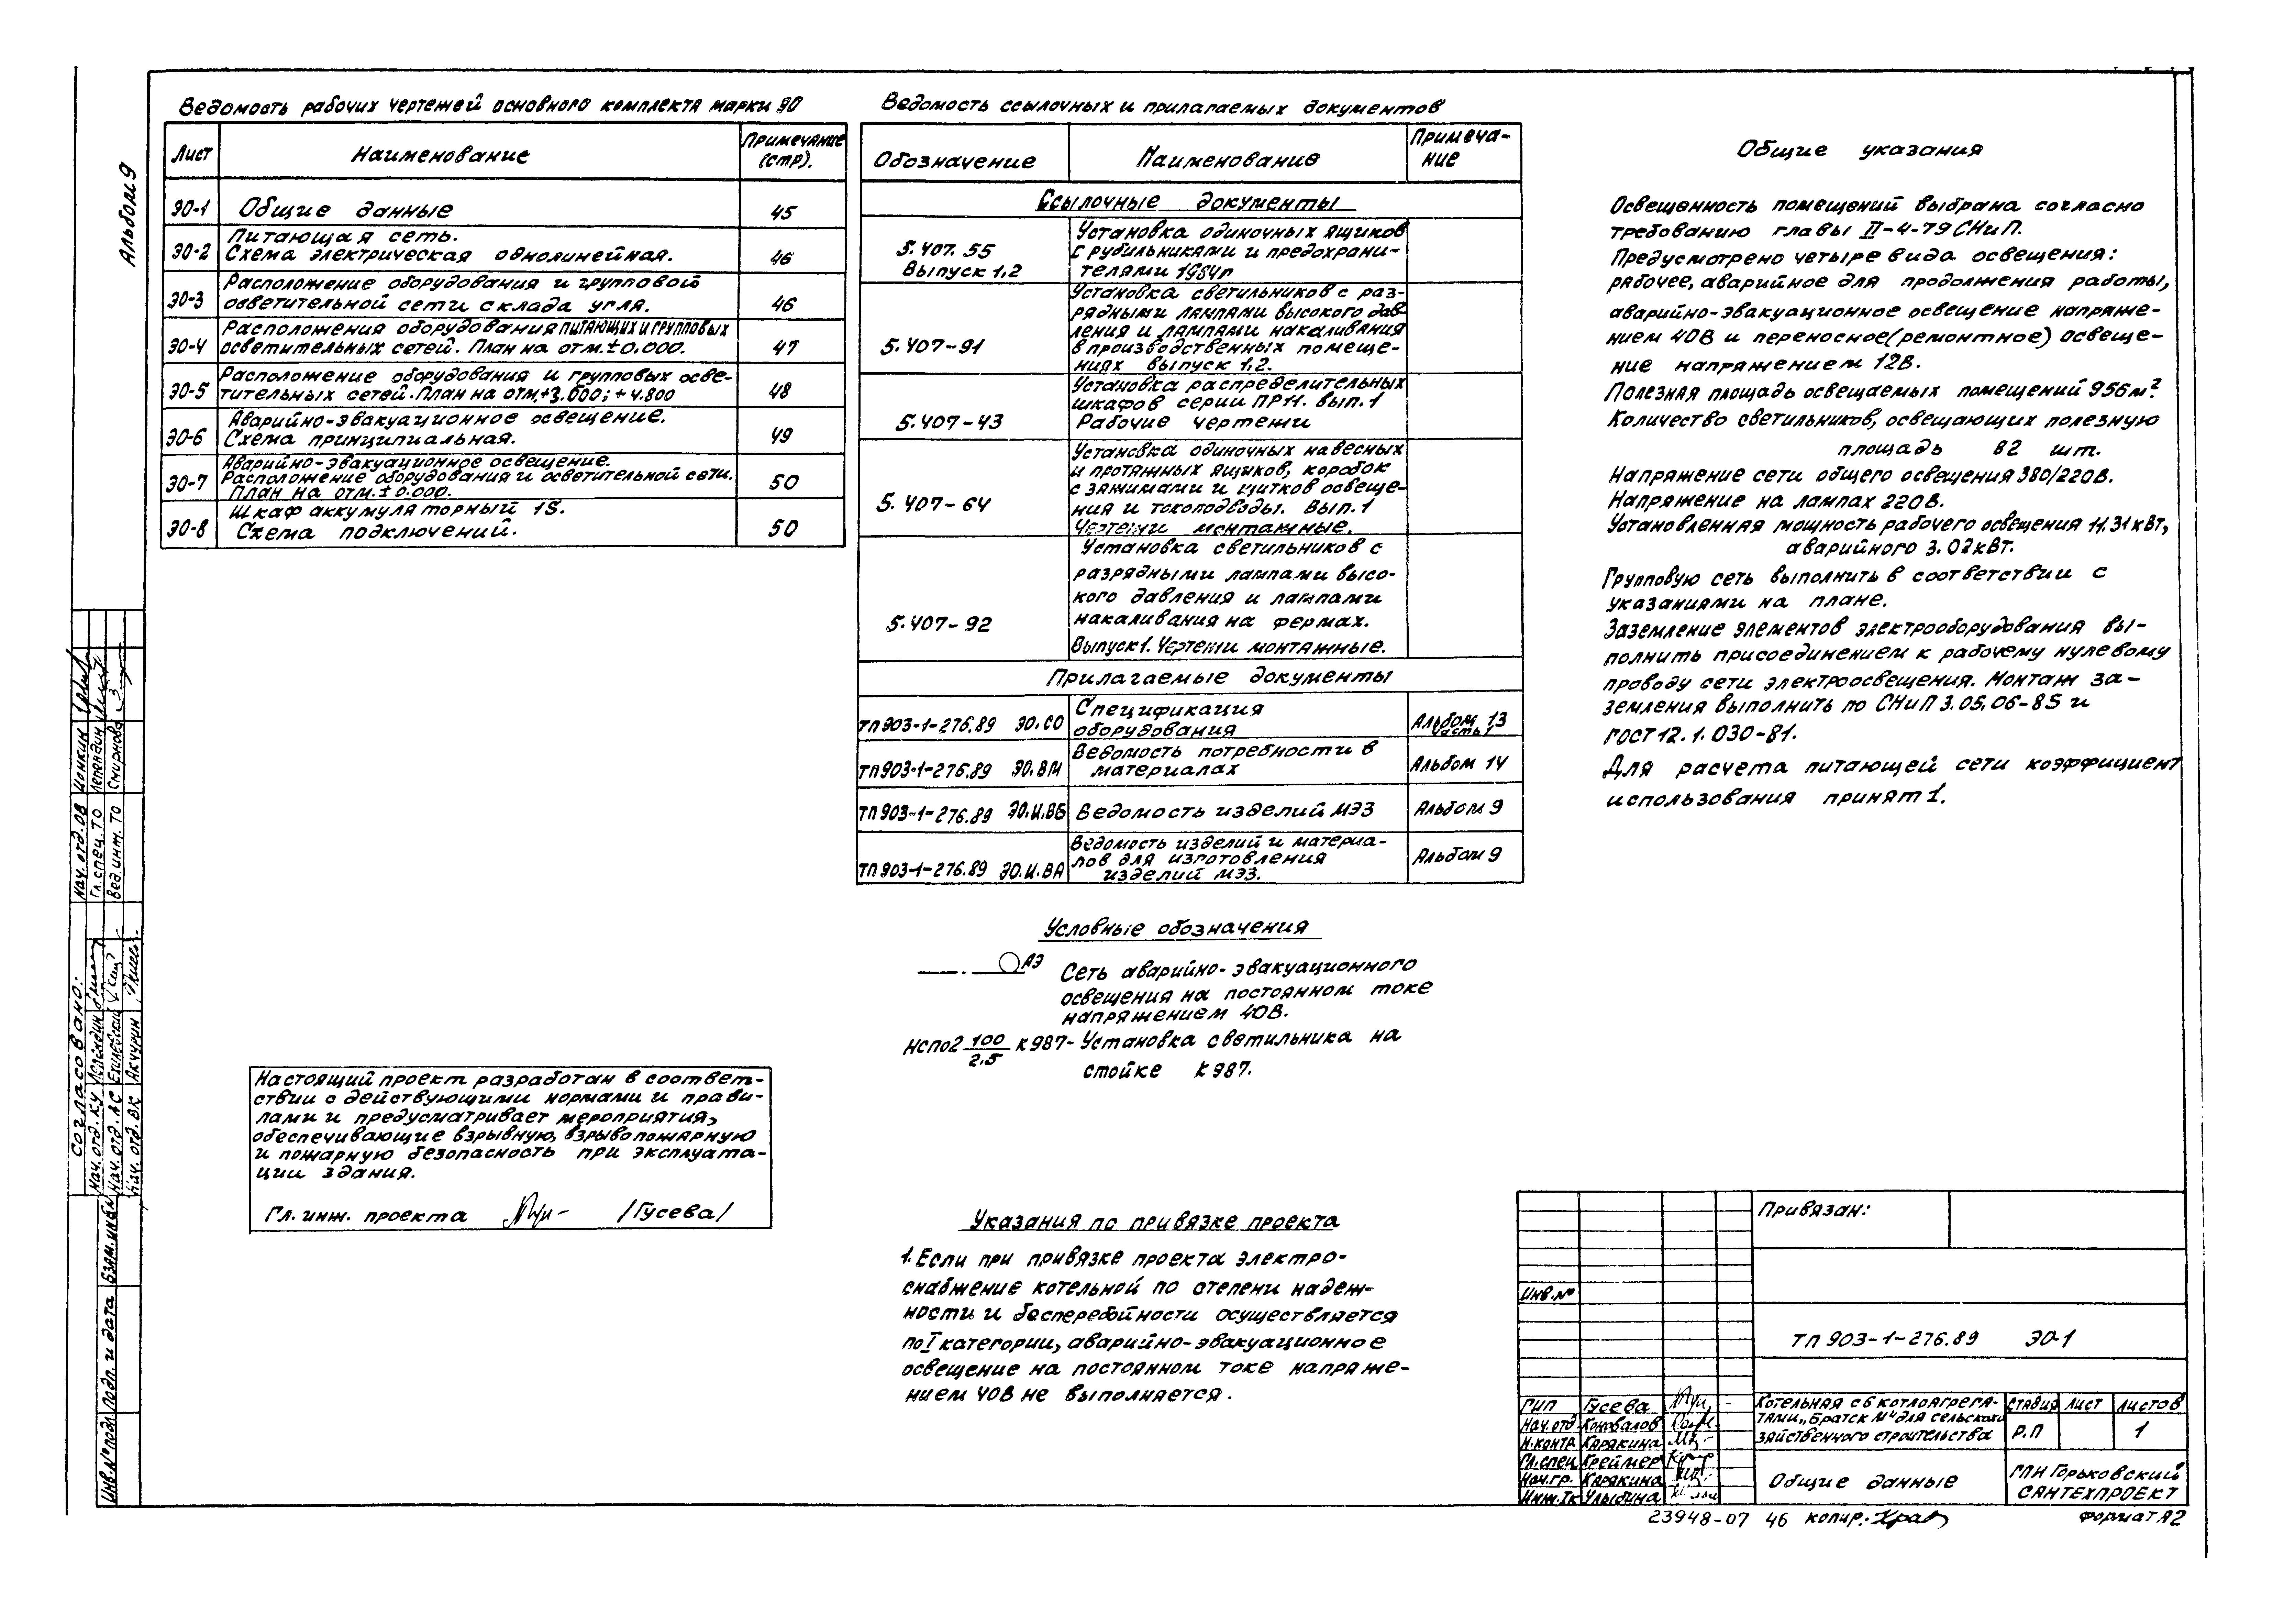 Альбом 9
Ведомость рабочих чертежей основного комплекта марки ЭО
Лист
Наименование
Примечание
(стр).
ЭО-1
Общие данные
45
ЭО-2
Питающая сеть.
Схема электрическая однолинейная.
46
ЭО-3
Расположение оборудования и групповой
осветительной сети склада угля.
46
ЭО-4
Расположения оборудования питающих и групповых
осветительных сетей. План на отм. ± 0.000.
47
ЭО-5
Расположение оборудования и групповых осве-
тительных сетей. План на отм. +3.600; +4.800
48
ЭО-6
Аварийно-эвакуационное освещение.
Схема принципиальная.
49
ЭО-7
Аварийно-эвакуационное освещение.
Расположение оборудования и осветительной сети.
План на отм. ± 0.000.
50
ЭО-8
Шкаф аккумуляторный 1S.
Схема подключений.
50
Ведомость ссылочных и прилагаемых документов
Обозначение
Наименование
Примеча-
ние
Ссылочные документы
5.407.55
Выпуск 1,2
Установка одиночных ящиков
с рубильниками и предохрани-
телями 1984г
5.407-91
Установка светильников с раз-
рядными лампами высокого дав-
ления и лампами накаливания
в производственных помеще-
ниях выпуск 1,2.
5.407-43
Установка распределительных
шкафов серии ПР11. вып.1
Рабочие чертежи
5.407-64
Установка одиночных навесных
и протяжных ящиков, коробок
с зажимами и щитков освеще-
ния и токоподводы. Вып.1
Чертежи монтажные.
5.407-92
Установка светильников с
разрядными лампами высо-
кого давления и лампами
накаливания на фермах.
Выпуск 1. Чертежи монтажные.
Прилагаемые документы
ТП 903-1-276.89 ЭО.СО
Спецификация
оборудования
Альбом 13
часть 1
ТП 903-1-276.89 ЭО.ВМ
Ведомость потребности в
материалах
Альбом 14
ТП 903-1-276.89 ЭО.И.ВБ
Ведомость изделий МЭЗ
Альбом 9
ТП 903-1-276.89 ЭО.И.ВА
Ведомость изделий и материа-
лов для изготовления
изделий МЭЗ.
Альбом 9
Условные обозначения
АЭ
Сеть аварийно-эвакуационного
освещения на постоянном токе
напряжением 40В.
НСП02 100/2.5 К987- Установка светильника на
стойке К987.
Указания по привязке проекта
1. Если при привязке проекта электро-
снабжение котельной по степени надеж-
ности и бесперебойности осуществляется
по I категории, аварийно-эвакуационное
освещение на постоянном токе напряже-
нием 40В не выполняется.
Общие указания
Освещенность помещений выбрана согласно
требованию главы II-4-79 СНиП.
Предусмотрено четыре вида освещения:
рабочее, аварийное для продолжения работы,
аварийно-эвакуационное освещение напряже-
нием 40В и переносное (ремонтное) освеще-
ние напряжением 12В.
Полезная площадь освещаемых помещений 956м².
Количество светильников, освещающих полезную
площадь 82 шт.
Напряжение сети общего освещения 380/220В.
Напряжение на лампах 220В.
Установленная мощность рабочего освещения 11.31кВт,
аварийного 3.02кВт.
Групповую сеть выполнить в соответствии с
указаниями на плане.
Заземление элементов электрооборудования вы-
полнить присоединением к рабочему нулевому
проводу сети электроосвещения. Монтаж за-
земления выполнить по СНиП 3.05.06-85 и
ГОСТ 12.1.030-81.
Для расчета питающей сети коэффициент
использования принят 1.
Настоящий проект разработан в соответ-
ствии с действующими нормами и прави-
лами и предусматривает мероприятия,
обеспечивающие взрывную, взрывопожарную
и пожарную безопасность при эксплуата-
ции здания.
Гл. инж. проекта /Гусева/
Согласовано:
Нач. отд. ОВ
Гл. спец. ТО
Вед. инж. ТО Смирнова
Нач. отд. КУ
Нач. отд. АС
Нач. отд. ВК Акчурин
Инв.№ подл.
Подп. и дата
Взам. инв.№
Привязан:
Инв.№
ТП 903-1-276.89 ЭО-1
ГИП Гусева
Нач. отд Коновалов
Н.контр Карякина
Гл.спец Креймер
Нач.гр. Карякина
Инж.Iк Улыбина
Котельная с 6 котлоагрега-
тами „Братск М" для сельскохо-
зяйственного строительства
Стадия Лист Листов
Р.П 1
Общие данные
ГПИ Горьковский
САНТЕХПРОЕКТ
23948-07 46 копир:
Формат А2